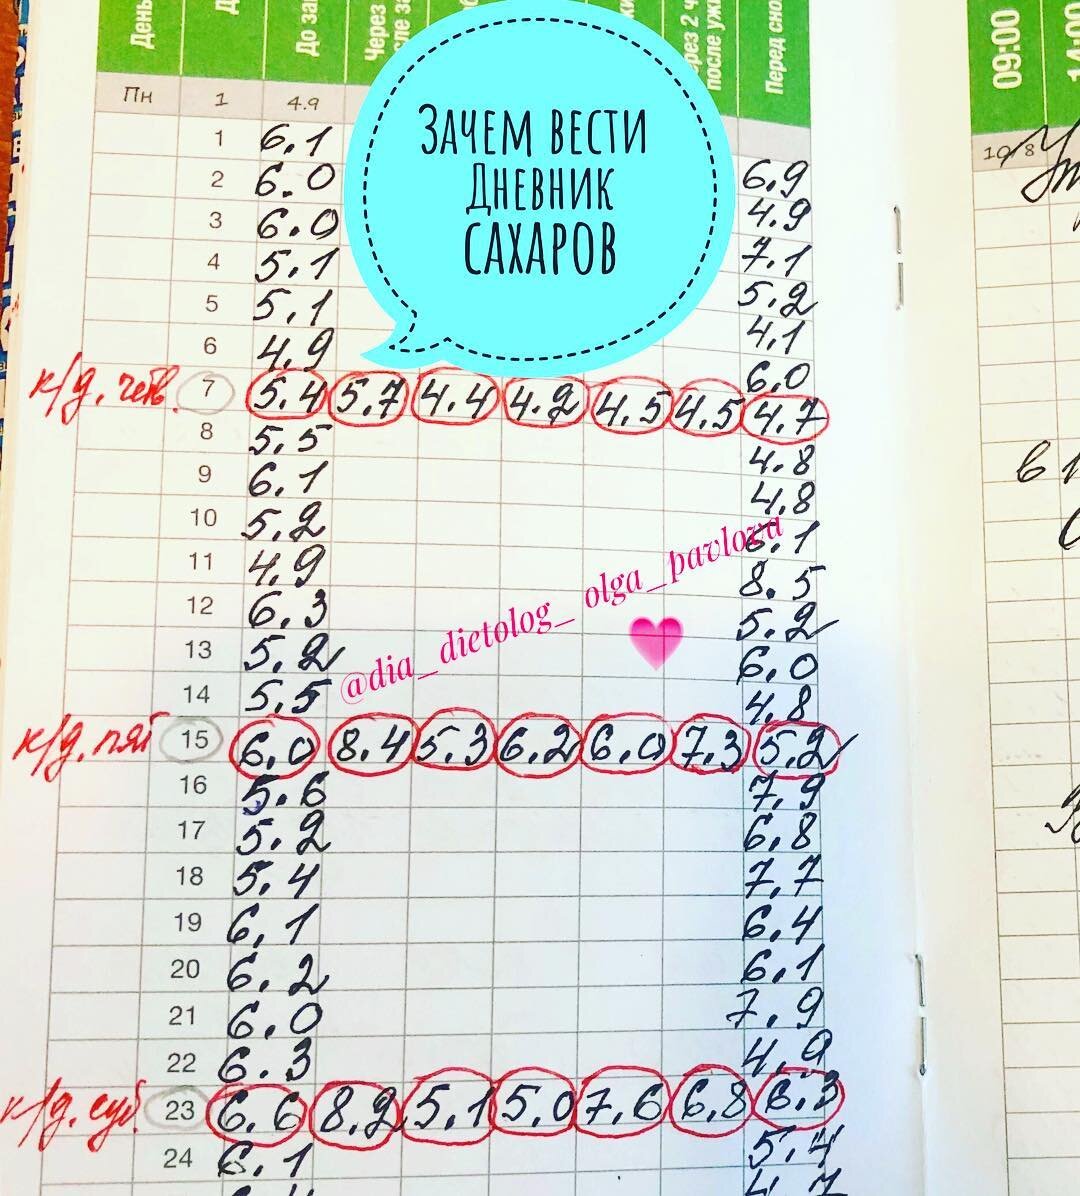 День
До за
Через
сле за
рез 2 ч
после ужи
Перед сно
09:00
14:00
Зачем вести
Дневник
сахаров
Пн 1 4.9
1 6.1 6.9
2 6.0 4.9
3 6.0 7.1
4 5.1 5.2
5 5.1 4.1
6 4.9 6.0
к/д. четв. 7 5.4 5.7 4.4 4.2 4.5 4.5 4.7
8 5.5 4.8
9 6.1 4.8
10 5.2 6.1
11 4.9 8.5
12 6.3 5.2
13 5.2 6.0
14 5.5 4.8
@dia_dietolog_ olga_pavlova
к/д. пят 15 6.0 8.4 5.3 6.2 6.0 7.3 5.2
16 5.6 7.9
17 5.2 6.8
18 5.4 7.7
19 6.1 6.4
20 6.2 6.1
21 6.0 7.9
22 6.3 4.9
к/д. суб. 23 6.6 8.2 5.1 5.0 7.6 6.8 6.3
24 6.1 5.4